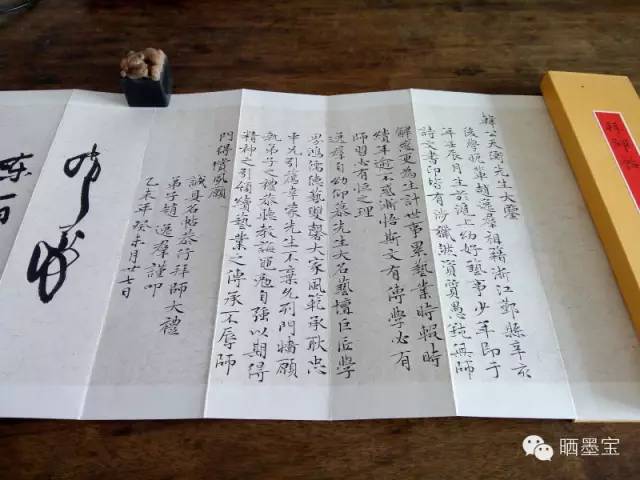 韓公天衡先生大鑒
後學晚輩趙逸羣祖籍浙江鄞縣辛亥
年壬辰月生於滬上幼好藝事少年即于
詩文書印皆有涉獵然資質愚鈍無師
解惑更為生計世事累藝業時輟時
續年逾不惑漸悟斯文有傳學必有
師習必有恒之理
逸羣自幼仰恭先生大名藝壇巨匠學
界鴻儒德藝雙馨大家風範承耿忠
平先引薦幸蒙先生不棄允列門牆願
執弟子之禮恭聽教誨黽勉自強以期得
精神之引領續藝業之傳承不辱師
門得償夙願
誠具名帖恭行拜師大禮
弟子趙逸羣謹叩
乙未年癸未月廿七日
晒墨宝